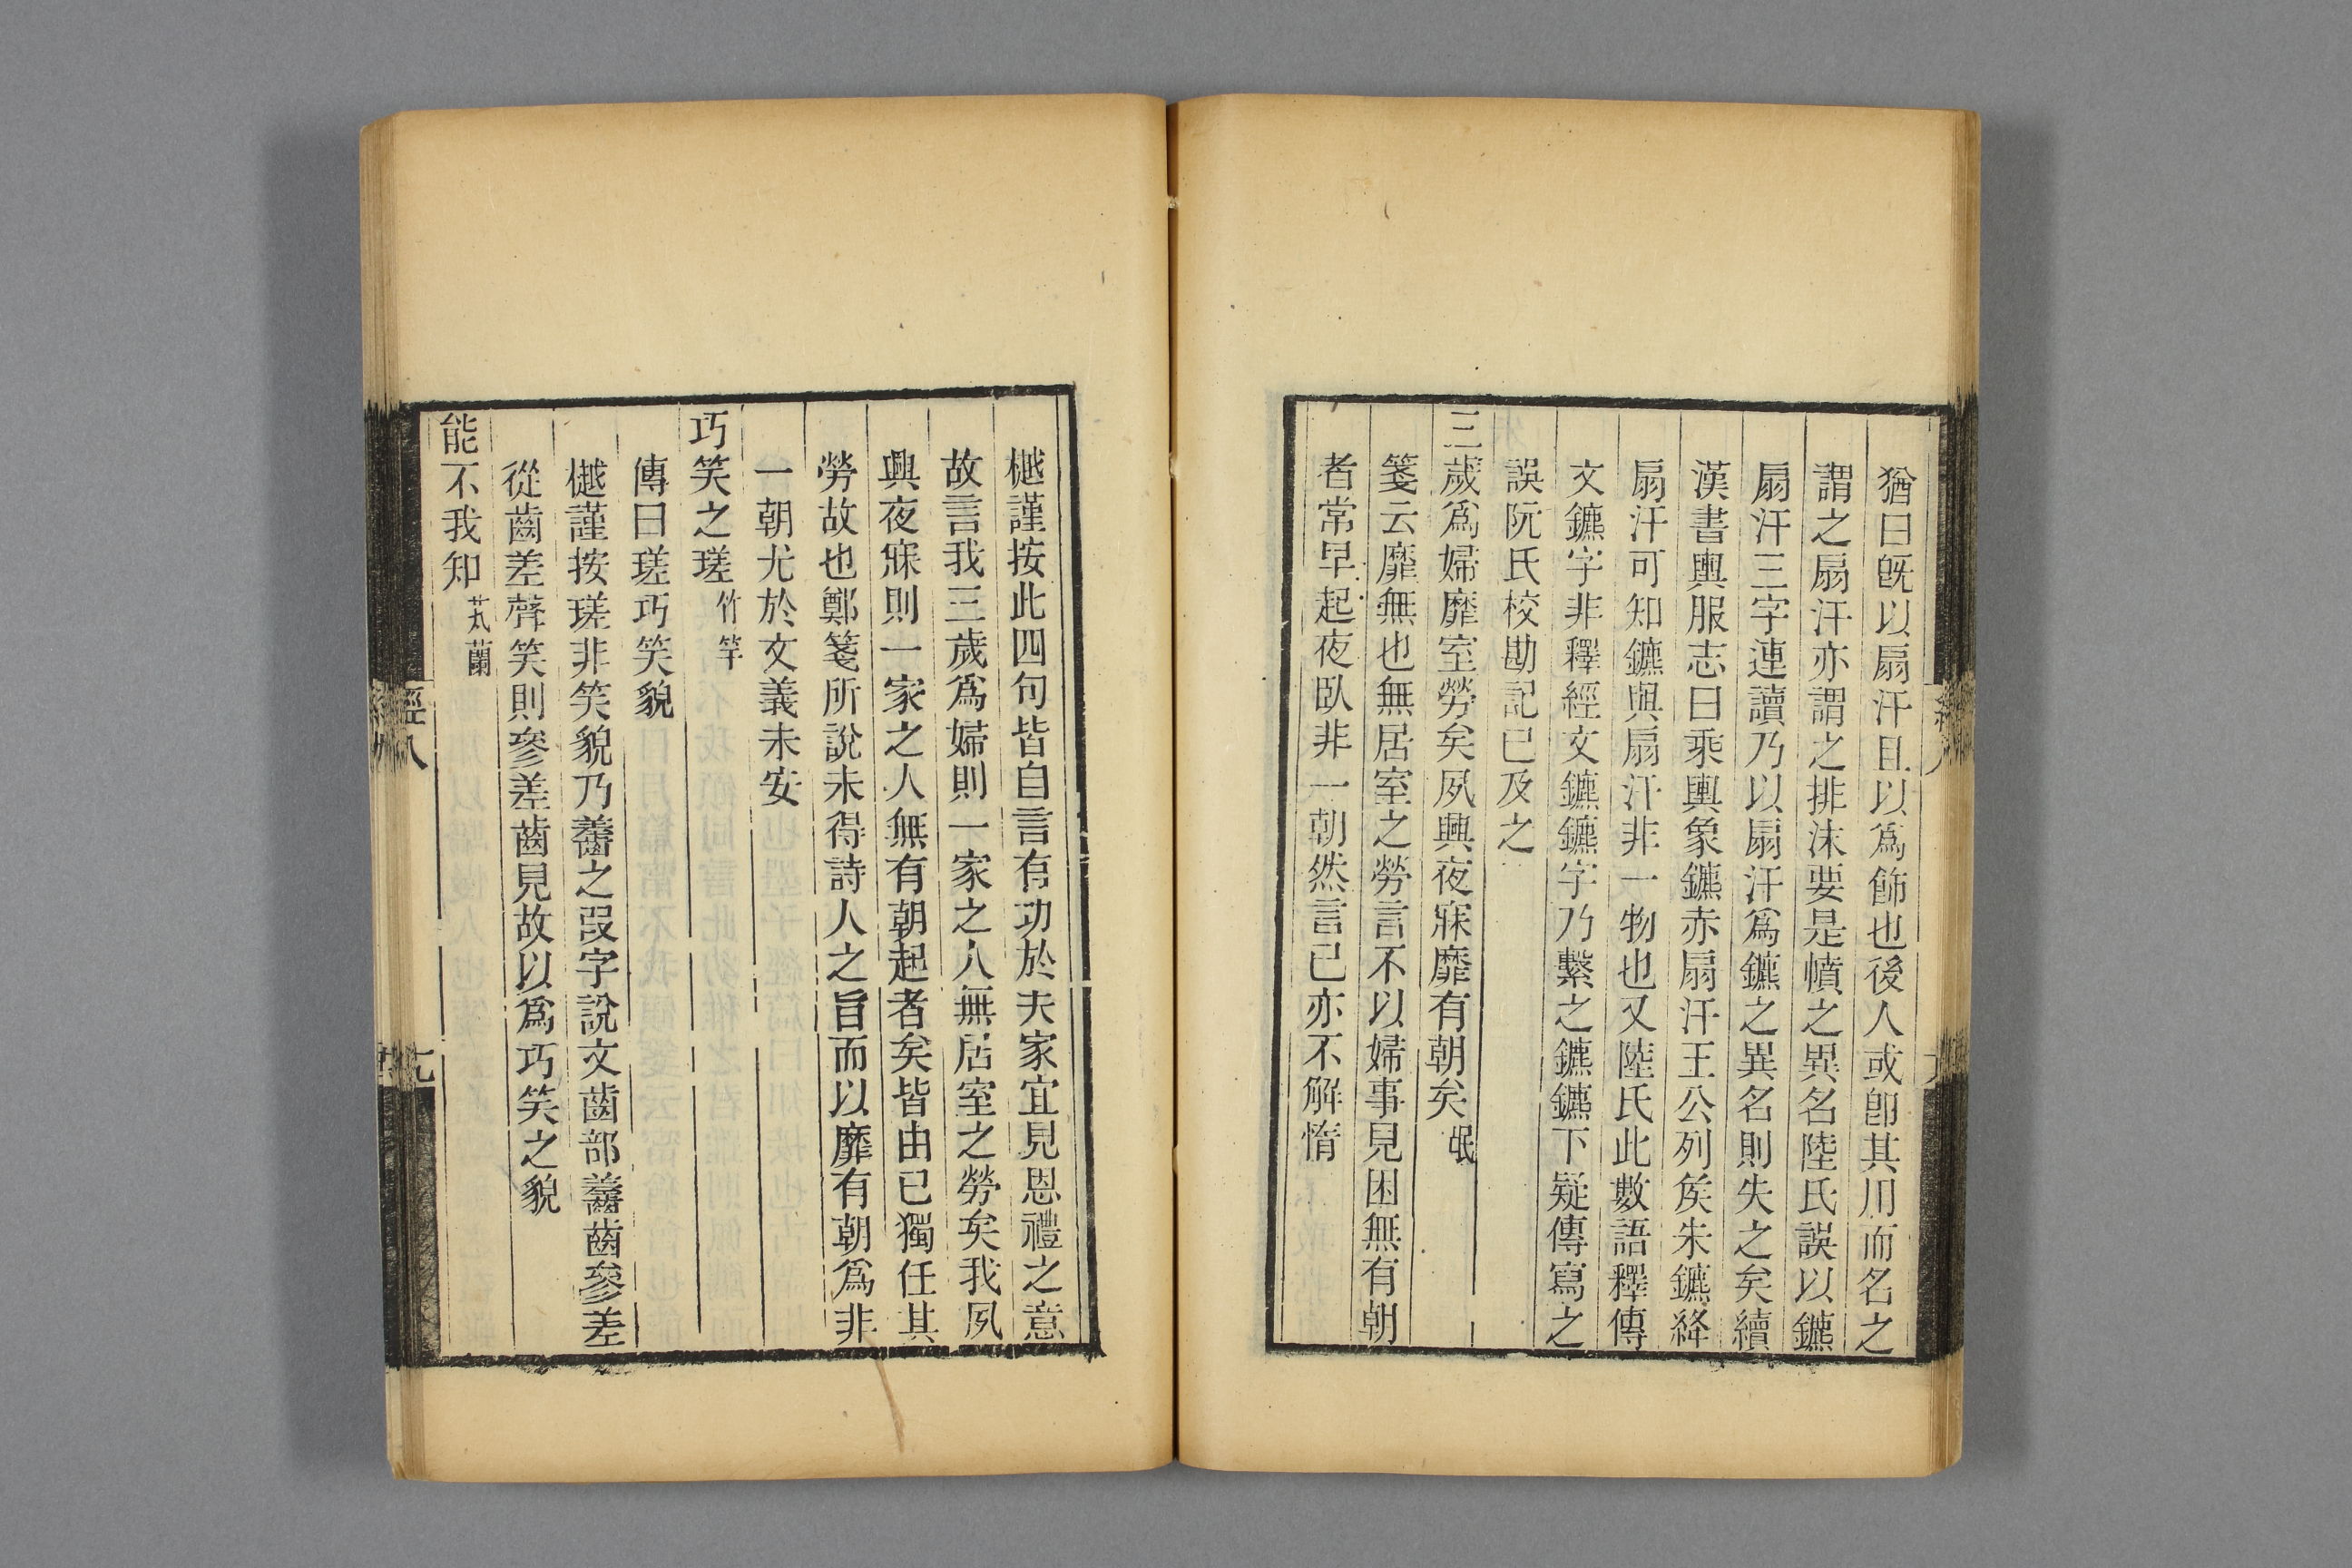 猶曰旣以扇汗且以爲飾也後人或卽其用而名之
謂之扇汗亦謂之排沫要是幩之異名陸氏誤以鑣
扇汗三字連讀乃以扇汗爲鑣之異名則失之矣續
漢書輿服志曰乘輿象鑣赤扇汗王公列矦朱鑣絳
扇汗可知鑣與扇汗非一物也又陸氏此數語釋傳
文鑣字非釋經文鑣鑣字乃繫之鑣鑣下疑傳寫之
誤阮氏校勘記已及之
三歲爲婦靡室勞矣夙興夜寐靡有朝矣 氓
箋云靡無也無居室之勞言不以婦事見困無有朝
者常早起夜臥非一朝然言已亦不解惰
樾謹按此四句皆自言有功於夫家宜見恩禮之意
故言我三歲爲婦則一家之人無居室之勞矣我夙
興夜寐則一家之人無有朝起者矣皆由已獨任其
勞故也鄭箋所說未得詩人之旨而以靡有朝爲非
一朝尤於文義未安
巧笑之瑳 竹竿
傳曰瑳巧笑貌
樾謹按瑳非笑貌乃齹之叚字說文齒部齹齒參差
從齒差聲笑則參差齒見故以爲巧笑之貌
能不我知 芄蘭
經八
九